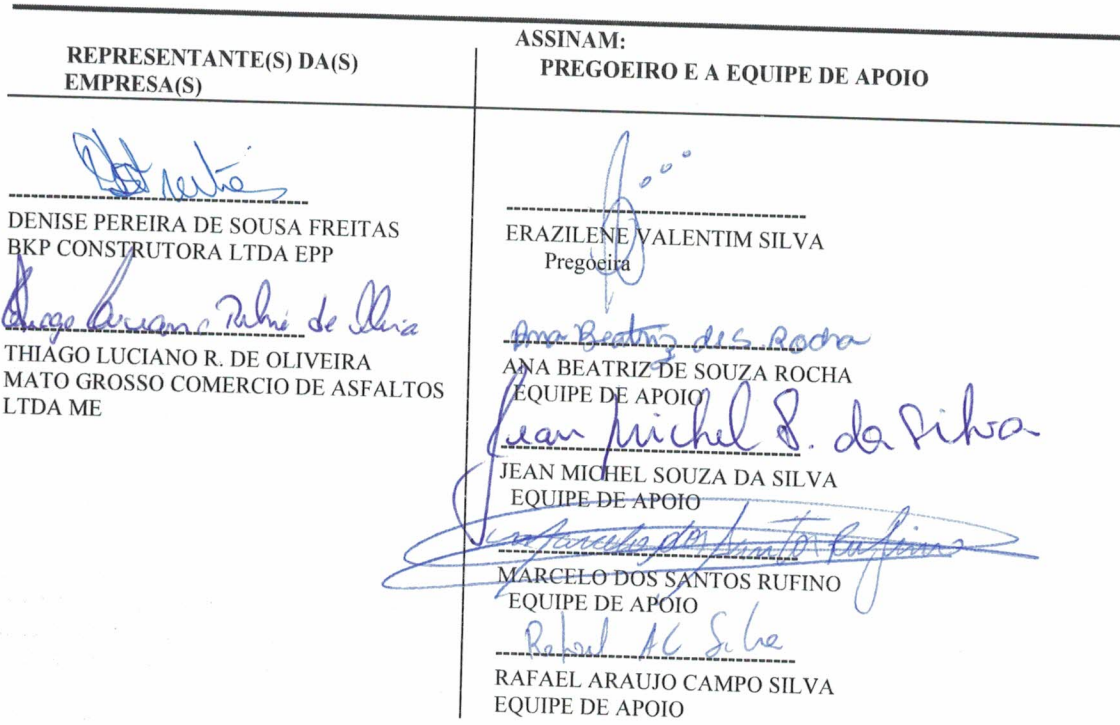 REPRESENTANTE(S) DA(S)
EMPRESA(S)
DENISE PEREIRA DE SOUSA FREITAS
BKP CONSTRUTORA LTDA EPP
Thiago Luciano de Oliveira
THIAGO LUCIANO R. DE OLIVEIRA
MATO GROSSO COMERCIO DE ASFALTOS
LTDA ME
ASSINAM:
PREGOEIRO E A EQUIPE DE APOIO
ERAZILENE VALENTIM SILVA
Pregoeira
Ana Beatriz de S Rocha
ANA BEATRIZ DE SOUZA ROCHA
EQUIPE DE APOIO
Jean Michel S. da Silva
JEAN MICHEL SOUZA DA SILVA
EQUIPE DE APOIO
Marcelo dos Santos Rufino
MARCELO DOS SANTOS RUFINO
EQUIPE DE APOIO
Rafael AC Silva
RAFAEL ARAUJO CAMPO SILVA
EQUIPE DE APOIO